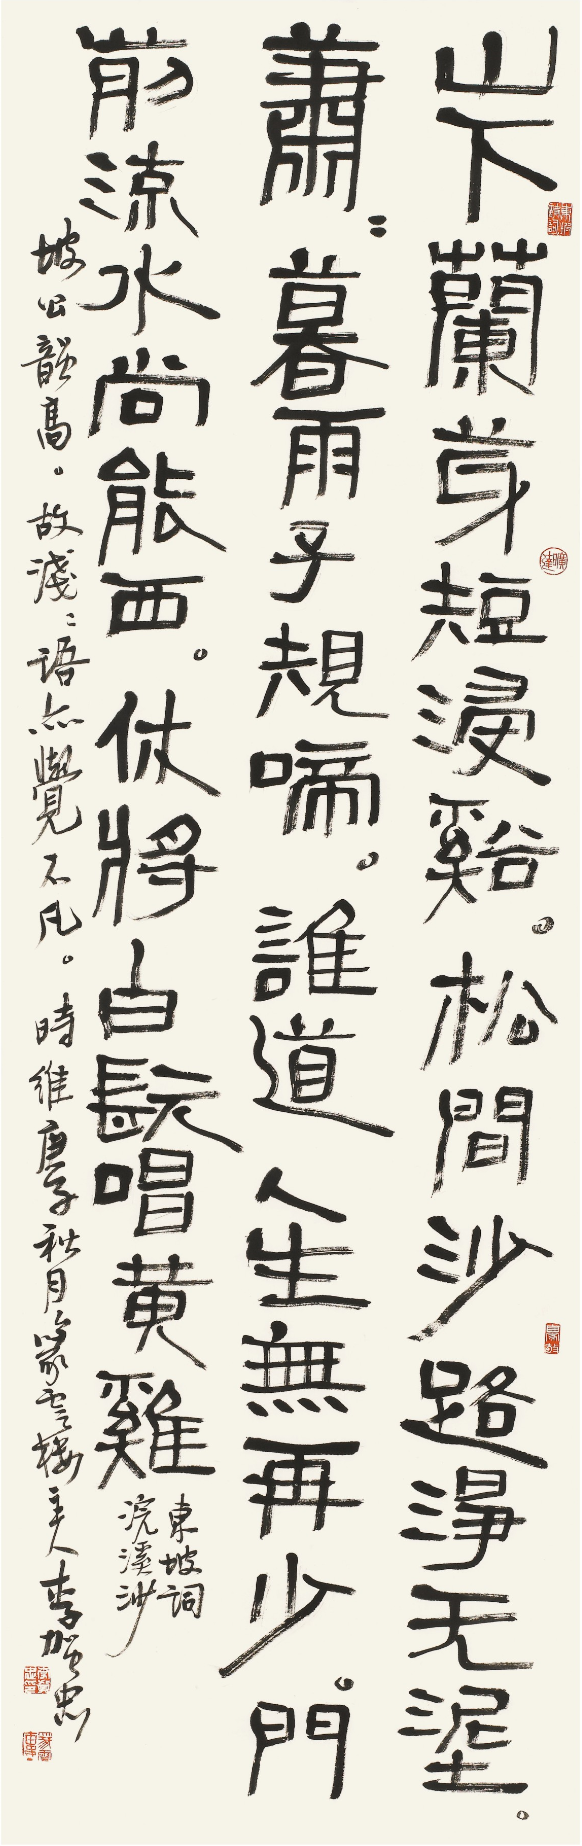 山下蘭芽短浸谿。松間沙路淨无泥。
蕭〻暮雨子規啼。誰道人生無再少。門
前流水尚能西。休將白髮唱黃雞
東坡詞
浣溪沙
坡公韻高。故淺〻語亦覺不凡。時維庚子秋月篆雲樓主人李賀忠